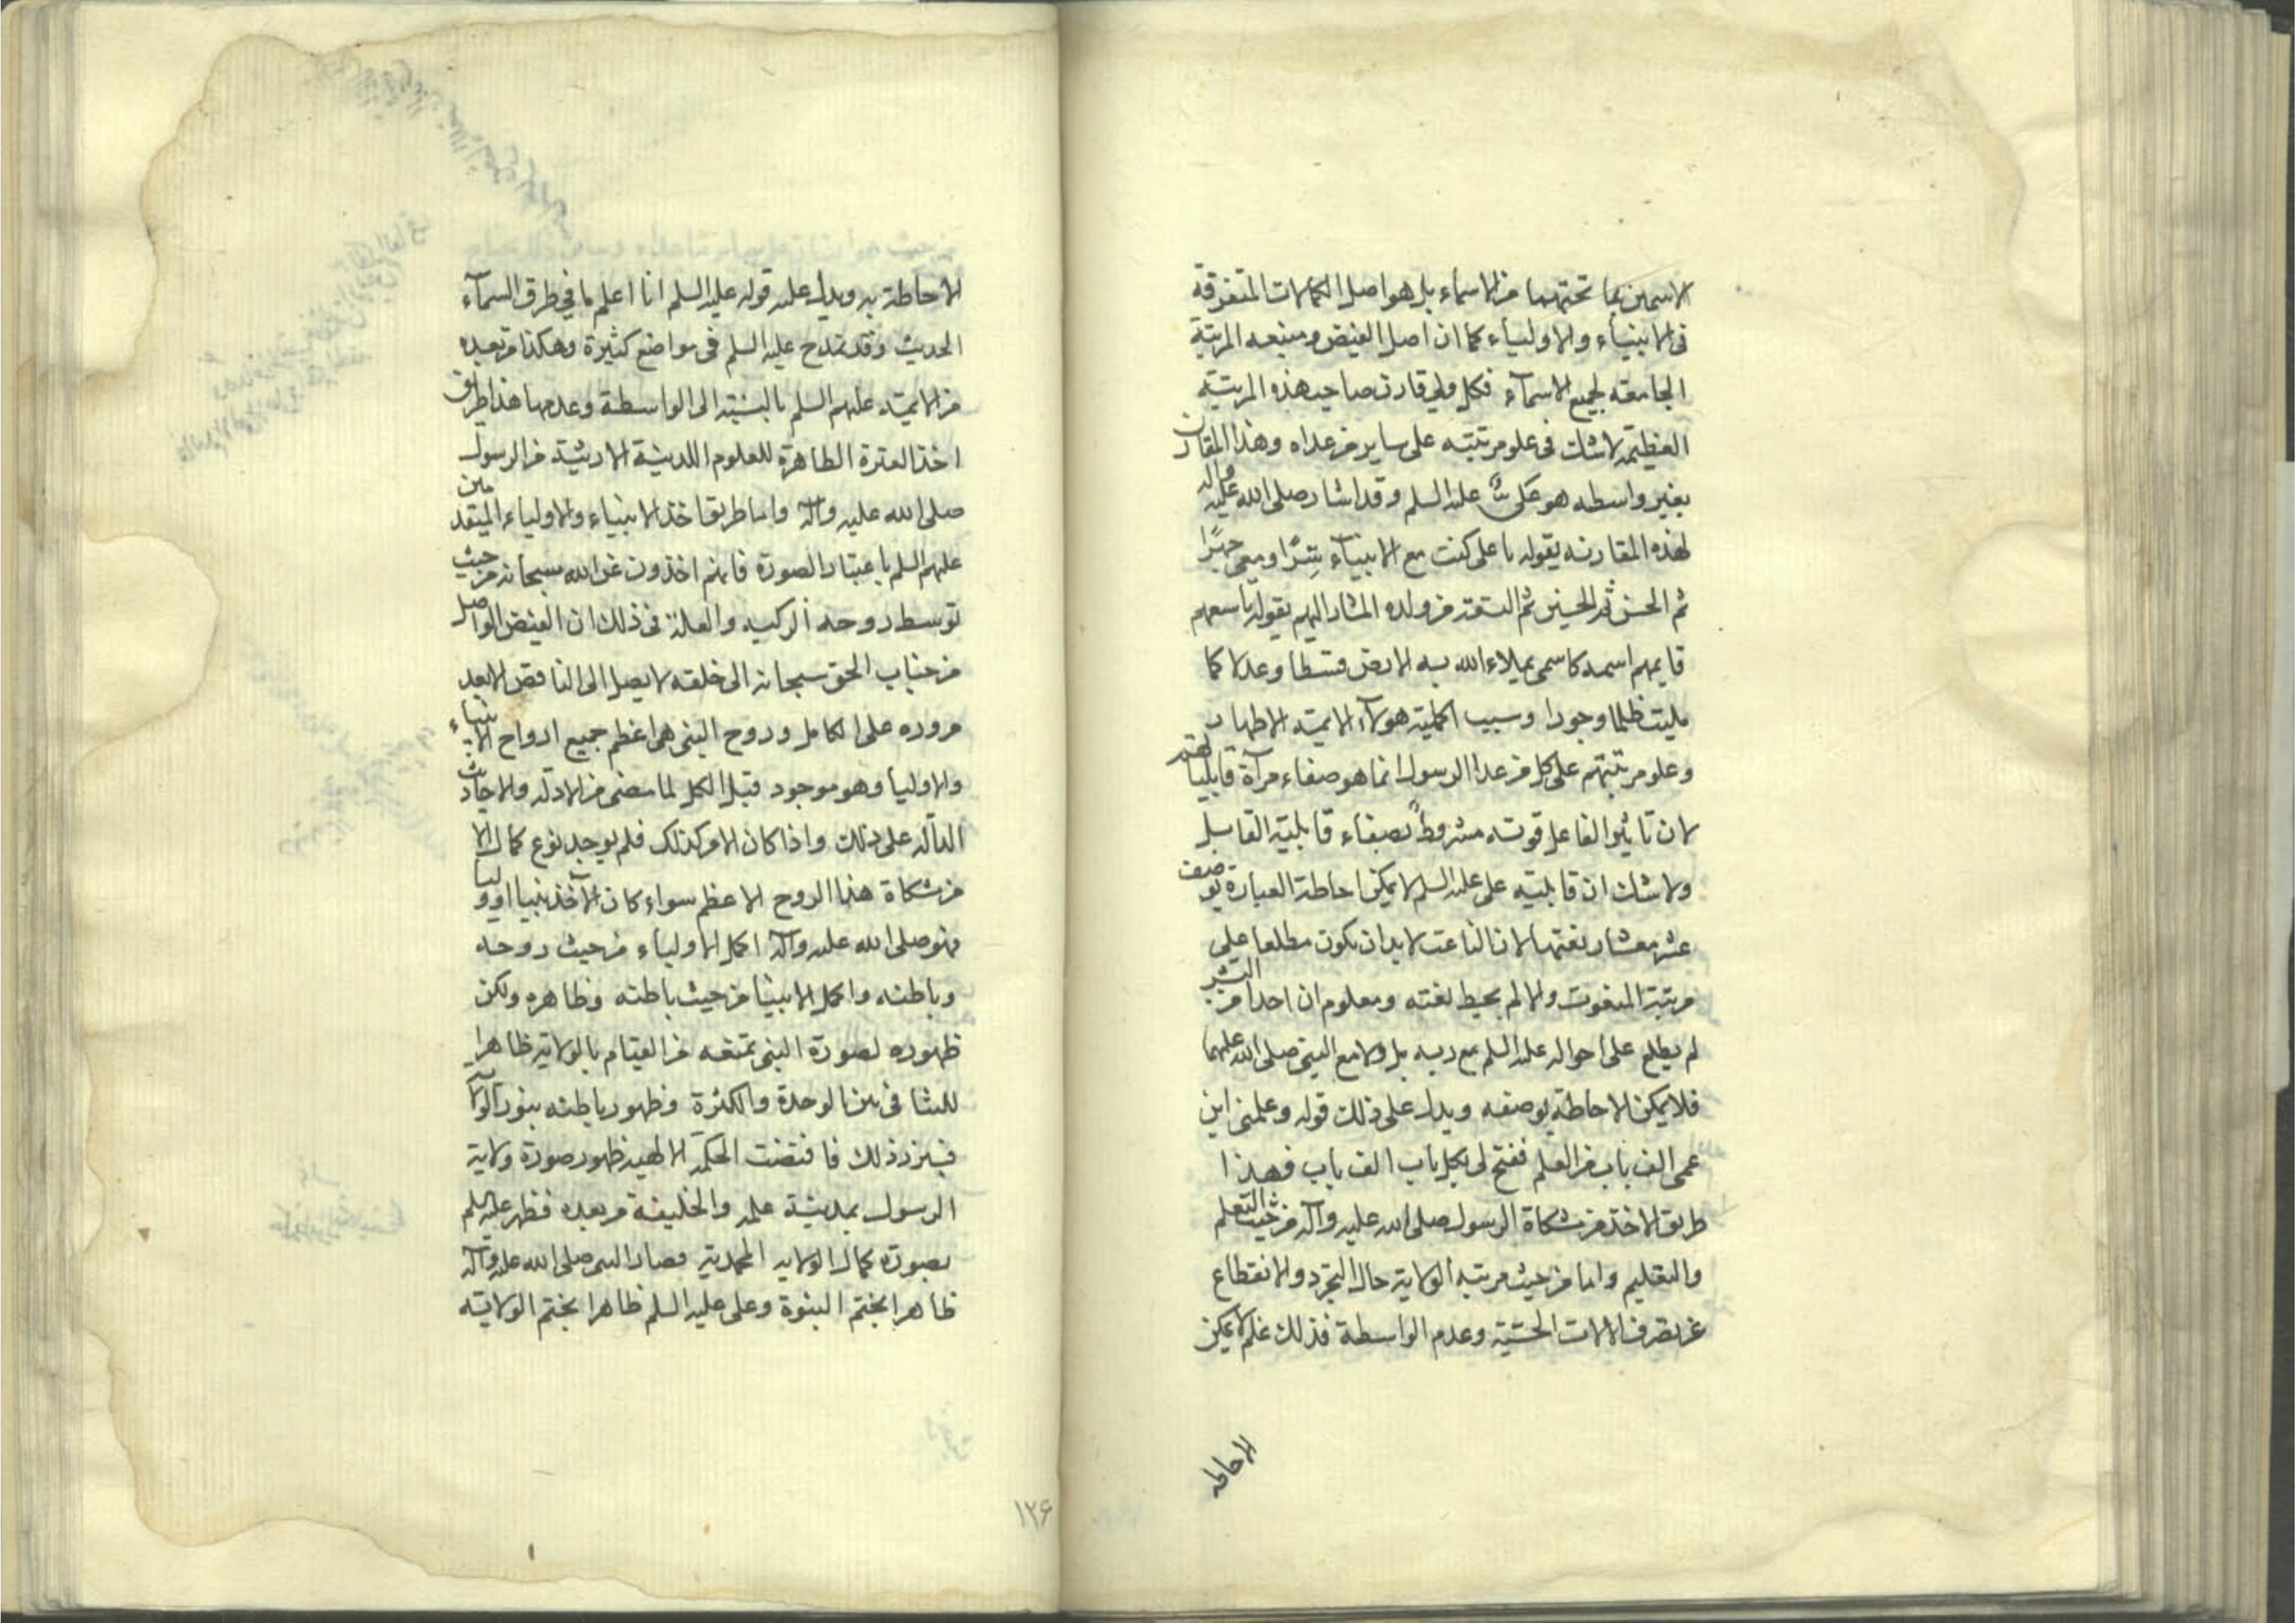 الاسمين بما تحتهما من الاسماء بل هو اصل الكمالات المتفرقة
فى الانبياء والاولياء كما ان اصل الفيض ومنبعه المرتبة
الجامعه لجميع الاسمآء فكل ولي قارن صاحب هذه المرتبة
العظيمة لا شك فى علو مرتبته على ساير من عداه وهذا المقارن
بغير واسطه هو على عليه السلم وقد اشار صلى الله عليه وآله
لهذه المقارنه بقوله يا على كنت مع الانبيآء سِرًّا ومعى جهرًا
ثم الحسن ثم الحسين ثم التسعة من ولده المشار اليهم بقوله تاسعهم
قايمهم اسمه كاسمى يملاء الله به الارض قسطا وعدلا كما
مليت ظلما وجورا وسبب اكملية هولآء الايمة الاطهار
وعلو مرتبتهم على كل من عدا الرسول انما هو صفاء مرآة قابلياتهم
لان تاثير الفاعل قوته مشروط بصفاء قابلية القابل
ولا شك ان قابلية على عليه السلم لا يمكن احاطة العبارة بوصف
عشر معشار نعتها لان الناعت لا بد ان يكون مطلعا على
مرتبة المنعوت والا لم يحيط بنعته ومعلوم ان احدا من البشر
لم يطلع على احواله عليه السلم مع ربه بل ولا مع النبى صلى الله عليهما
فلا يمكن الاحاطة بوصفه ويدل على ذلك قوله وعلمنى ابن
عمى الف باب من العلم ففتح لى بكل باب الف باب فهذا
طريق الاخذ من مشكاة الرسول صلى الله عليه وآله من حيث التعلم
والتعليم واما من حيث مرتبة الولاية حال التجرد والانقطاع
عن تصرف الالات الحسّية وعدم الواسطة فذلك علم لا يمكن
الاحاطه
الاحاطة به ويدل عليه قوله عليه السلم انا اعلم بما في طرق السمآء
الحديث وقد تمدح عليه السلم فى مواضع كثيرة وهكذا من بعده
من الايمة عليهم السلم بالنسبة الى الواسطة وعدمها هذا طريق
اخذ العترة الطاهرة للعلوم اللدنية الارثية من الرسول
صلى الله عليه وآله واما طريق اخذ الانبياء والاولياء المتقدمين
عليهم السلم باعتبار الصورة فانهم اخذون عن الله سبحانه من حيث
توسط روحه الزكيه والعلة فى ذلك ان الفيض الواصل
من جناب الحق سبحانه الى خلقه لا يصل الى الناقص الا بعد
مروره على الكامل وروح النبى هى اعظم جميع ارواح الانبياء
والاوليا وهو موجود قبل الكل لما مضى من الادله والاحاديث
الدآله على ذلك واذا كان الامر كذلك فلم يوجد نوع كمال الا
من مشكاة هذا الروح الاعظم سواء كان الآخذ نبيا او وليا
فهو صلى الله عليه وآله اكمل الاولياء من حيث روحه
وباطنه واكمل الانبيا من حيث باطنه وظاهره ولكن
ظهوره بصورة النبى تمنعه من القيام بالولاية ظاهرا
للتنافى بين الوحدة والكثرة وظهور باطنه بنور الولاية
فاقتضت الحكمة الالهيه ظهور صورة ولاية
الرسول بمدينة علمه والخليفة من بعده فظهر عليه السلم
بصورة كمال الولايه المحمدية فصار النبى صلى الله عليه وآله
ظاهرا بختم النبوة وعلى عليه السلم ظاهرا بختم الولاية
١٢۶